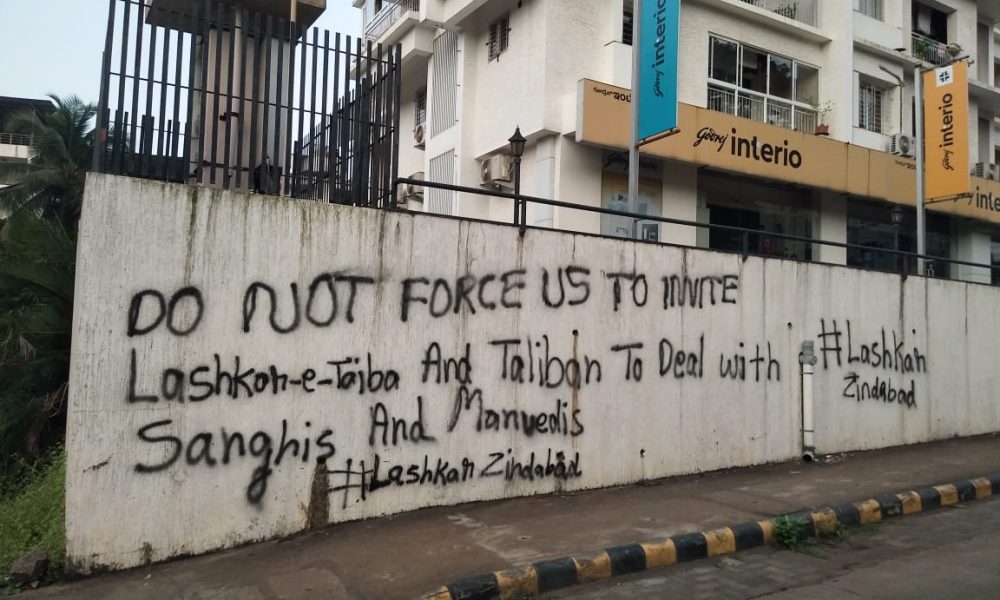 Godrej interio
ಗೋದ್ರೆಜ್ ಇಂಟ
Godrej interio
Godrej inte
Godrej interio
DO NOT FORCE US TO INVITE
Lashkar-e-Taiba And Taliban To Deal with
Sanghis And Manvedis
#Lashkar Zindabad
#Lashkar
Zindabad